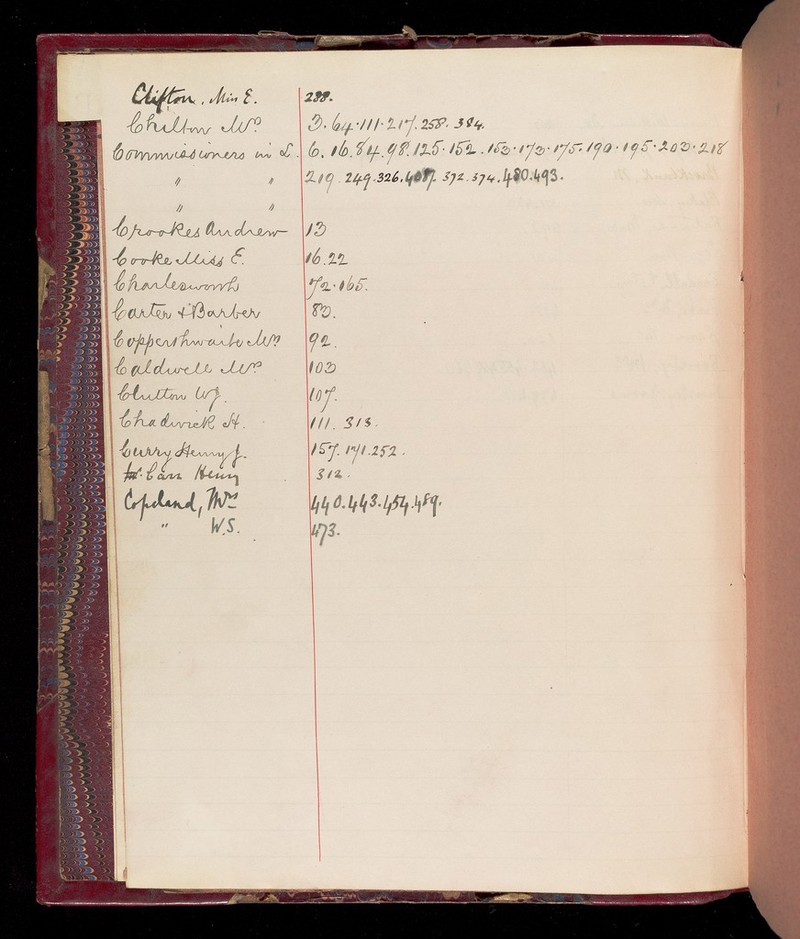 Clifton, Miss E. 288.
Chilton Mrs 3. 64. 111. 217. 258. 384.
Commissioners in L. 6. 16. 84. 98. 125. 152. 153. 173. 175. 190. 195. 203. 218
" " 219. 249. 326. 372. 374. 480. 493.
" "
Crookes Andrew 13
Cooke Miss E. 16. 22
Charlesworth 72. 165.
Carter & Barber 83.
Copperthwaite Mrs 92.
Caldwell Mrs 103
Clutton W J. 107.
Chadwick H. 111. 313.
Curry Henry J. 157. 171. 252.
Carr Henry 312.
Copeland, Mrs 440. 443. 454. 489.
" W.S. 473.